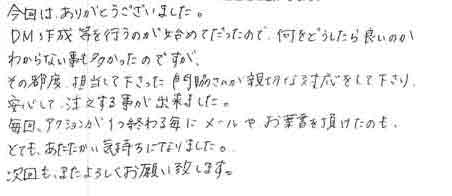 今回は、ありがとうございました。
DM作成等を行うのが始めてだったので、何をどうしたら良いのか
わからない事も多かったのですが、
その都度、担当して下さった門脇さんが親切な対応をして下さり、
安心して、注文する事が出来ました。
毎回、アクションが1つ終わる毎に メールや お葉書を頂けたのも、
とても、あたたかい気持ちになりました。
次回も、またよろしくお願い致します。